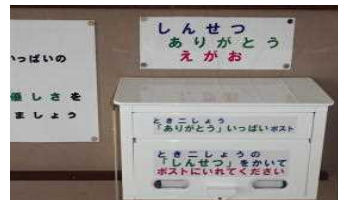 いっぱいの
優しさを
ましょう
しんせつ
ありがとう
えがお
ときニしょう
「ありがとう」いっぱいポスト
ときニしょうの
「しんせつ」をかいて
ポストにいれてください